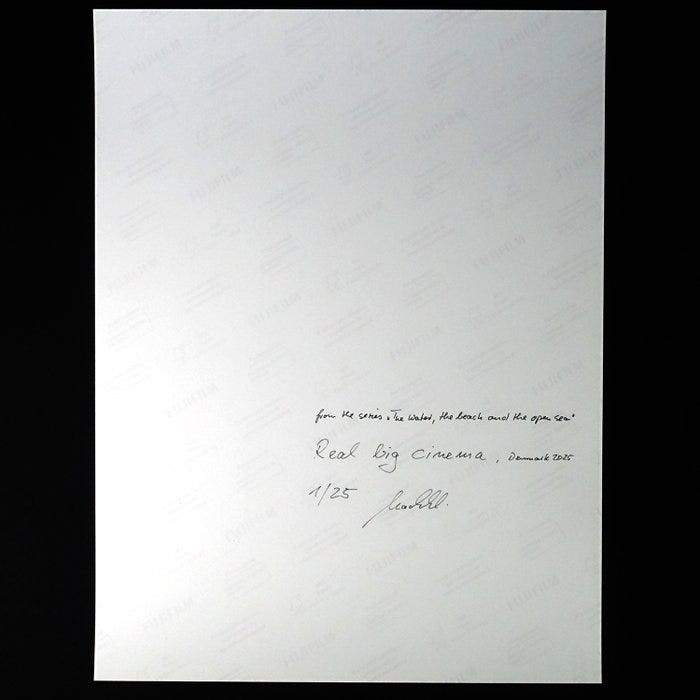 from the series "The Water, the beach and the open sea"
Real big cinema, Denmark 2025
1/25
FUJIFILM